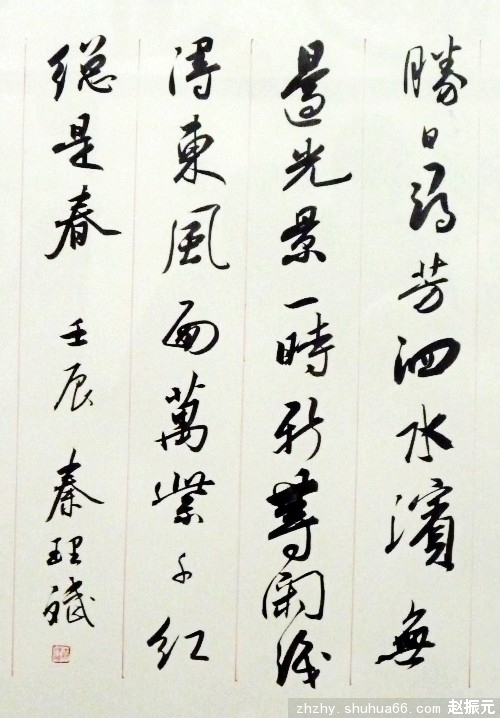 勝日尋芳泗水濱無
邊光景一時新等閑識
得東風面萬紫千紅
總是春 壬辰 秦理斌
zhzhy.shuhua66.com 赵振元